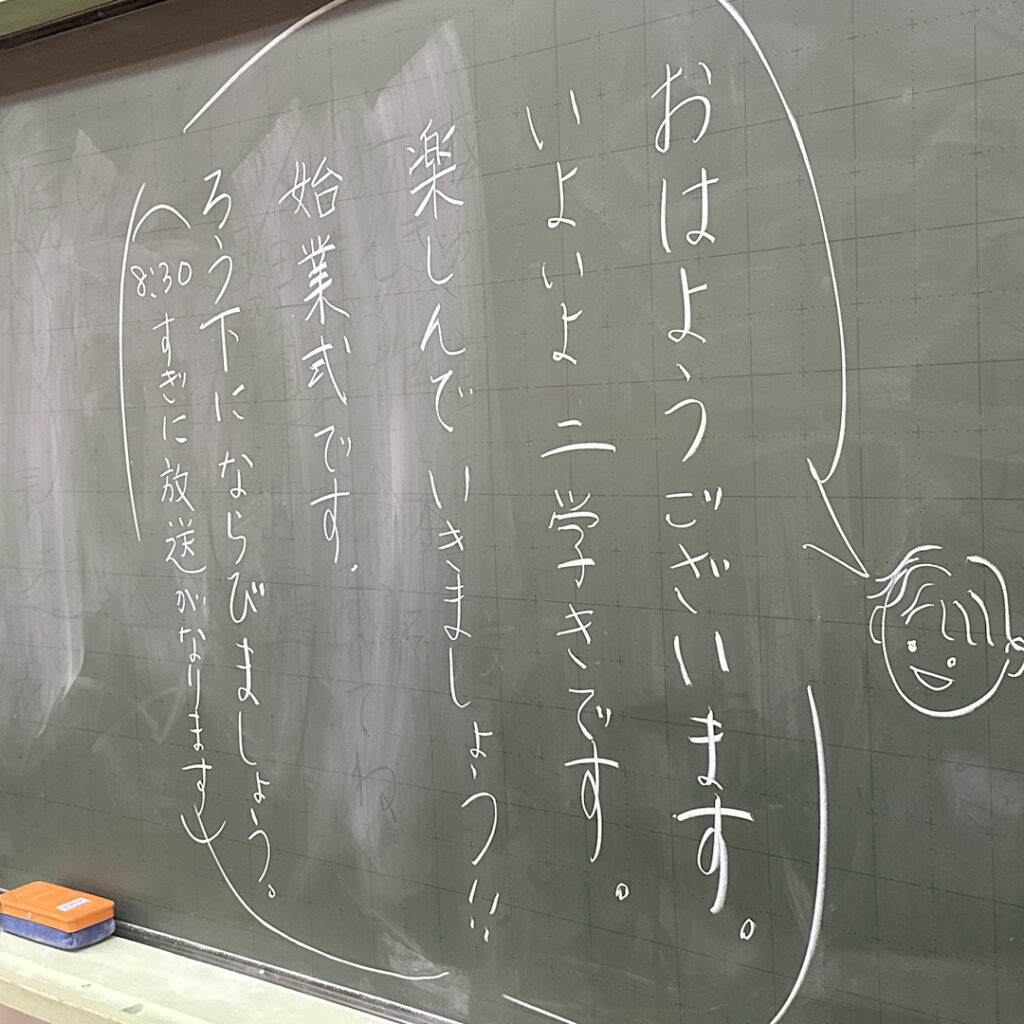 おはようございます。
いよいよ二学きです。
楽しんでいきましょう!!
始業式です。
ろう下にならびましょう。
(8:30すぎに放送がなります)